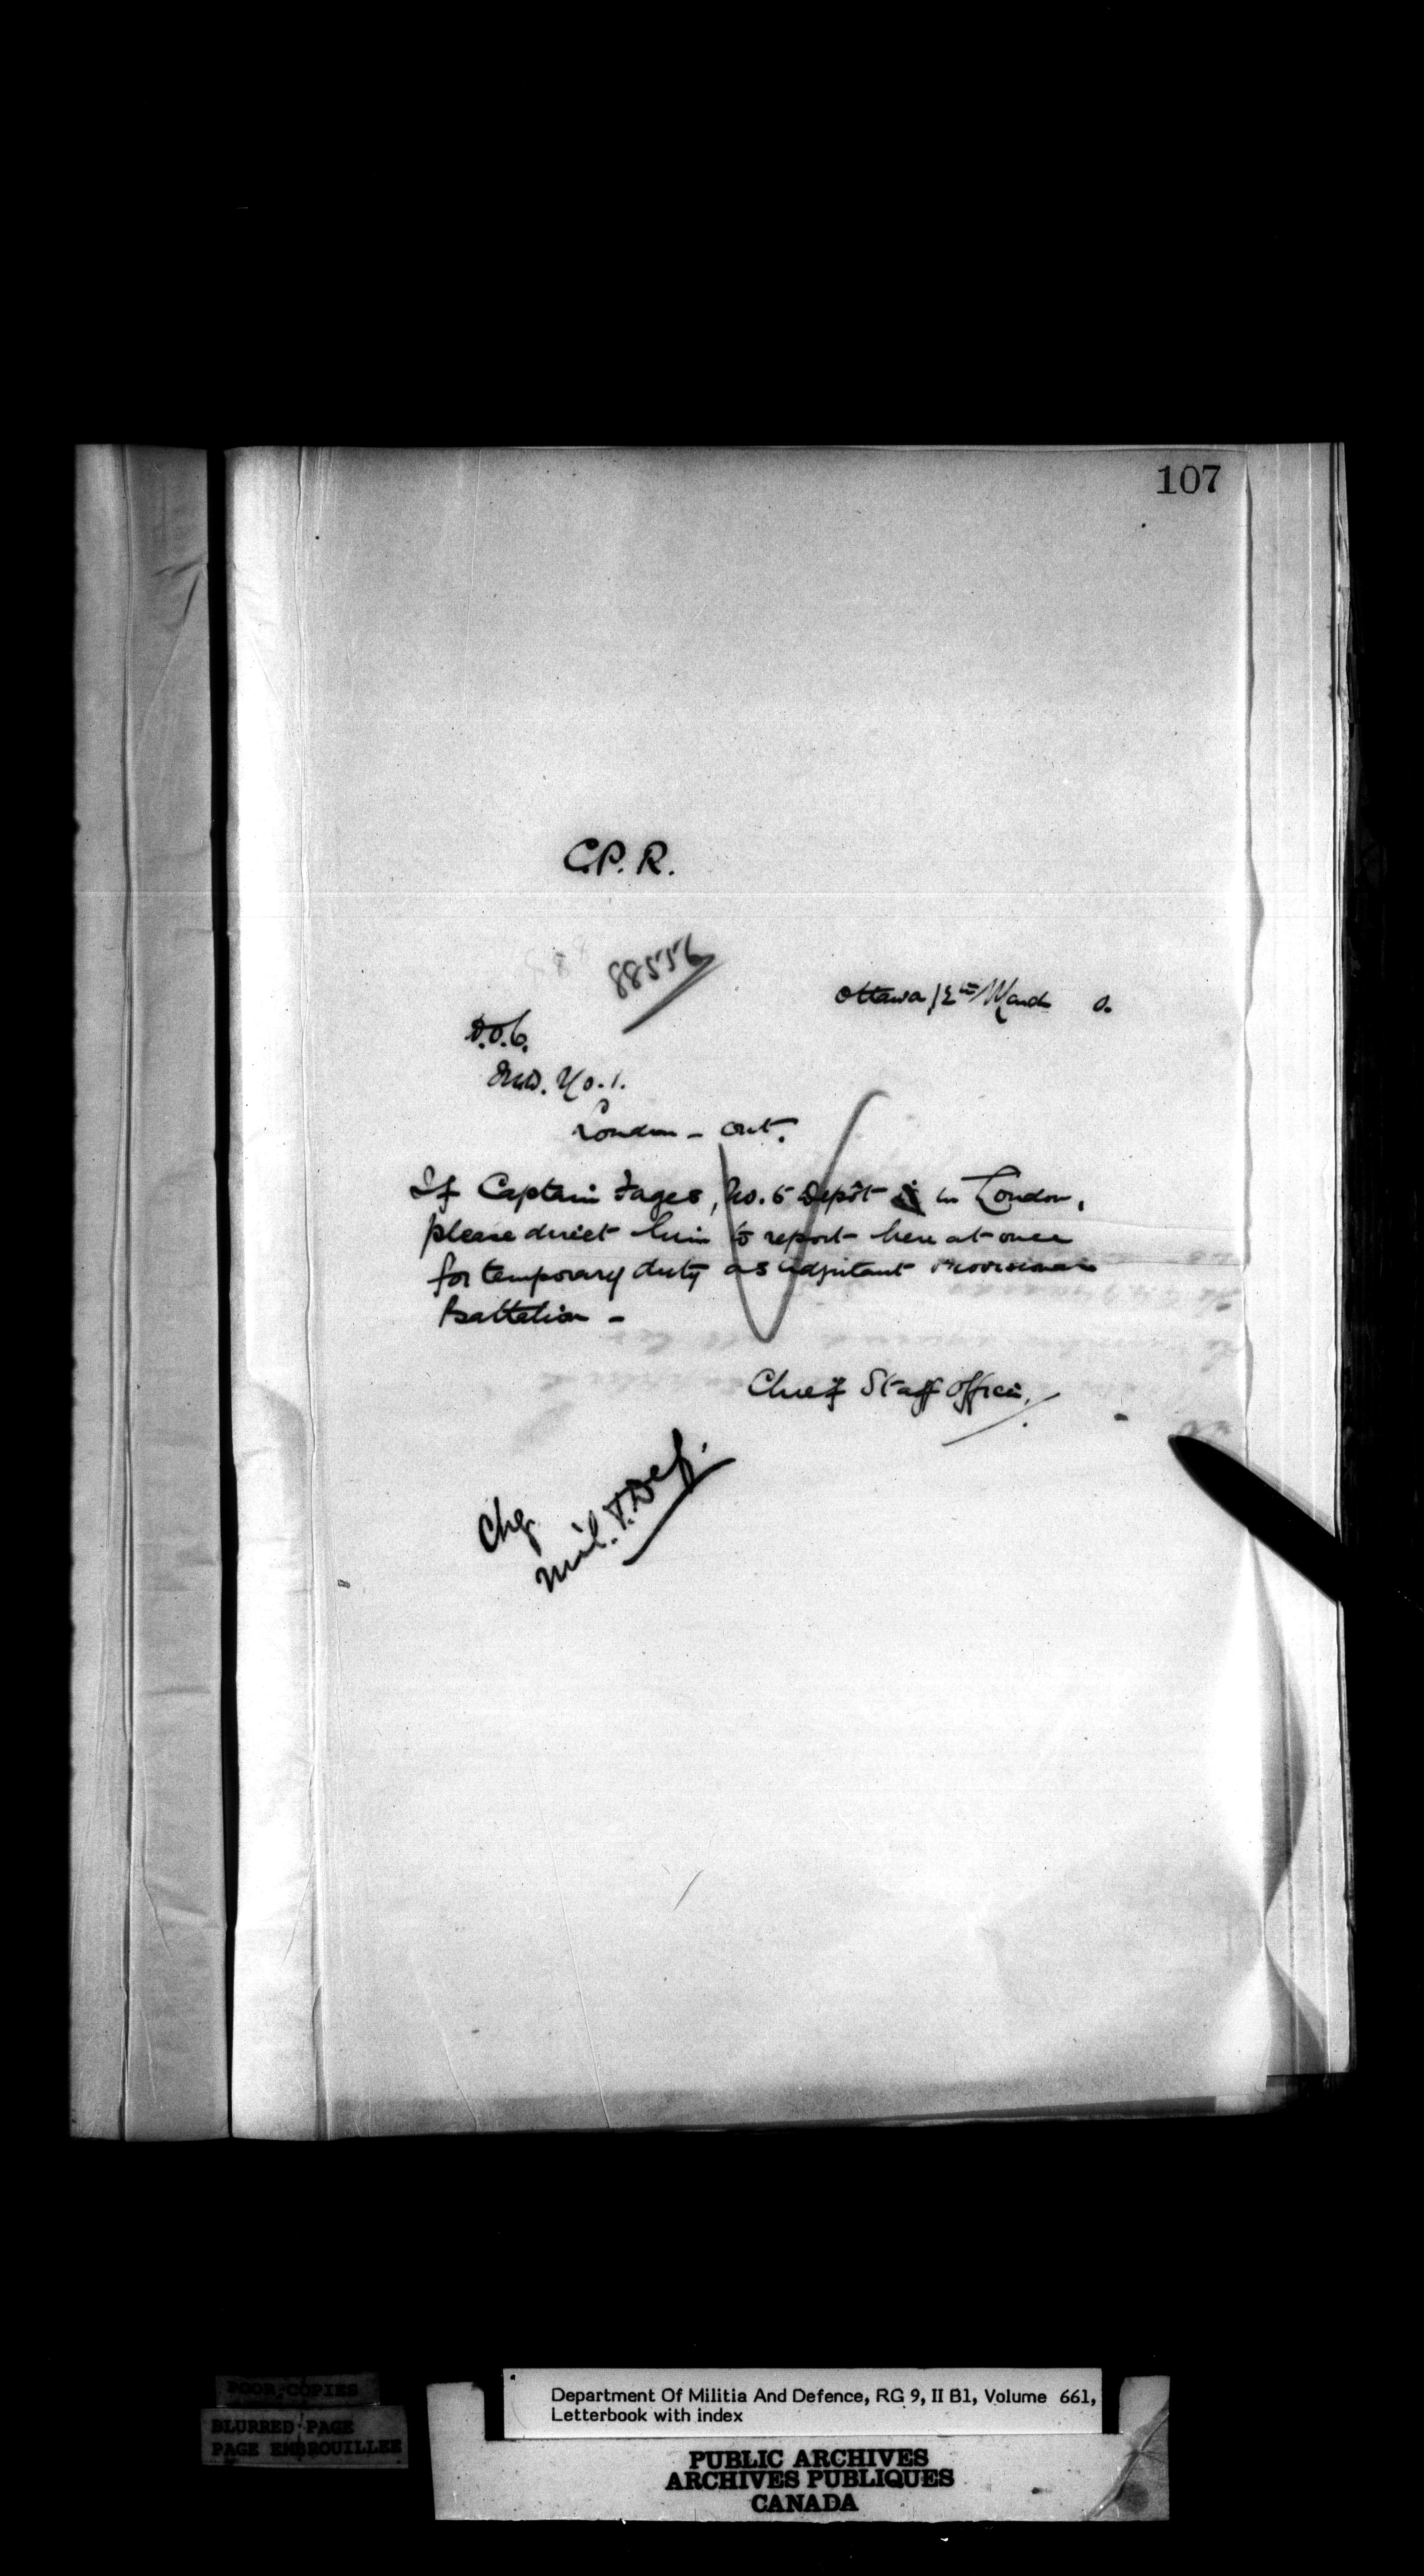 107
C.P.R.
88556
Ottawa 12th March 0.
D.O.C.
M.D. No. 1.
London - Ont.
If Captain Fages, No. 5 Depôt is in London,
please direct him to report here at once
for temporary duty as adjutant Provisional
Battalion -
Chief Staff Officer.
Chg
Mil. & Def.
POOR COPIES
BLURRED PAGE
PAGE EMBROUILLEE
Department Of Militia And Defence, RG 9, II B1, Volume 661,
Letterbook with index
PUBLIC ARCHIVES
ARCHIVES PUBLIQUES
CANADA